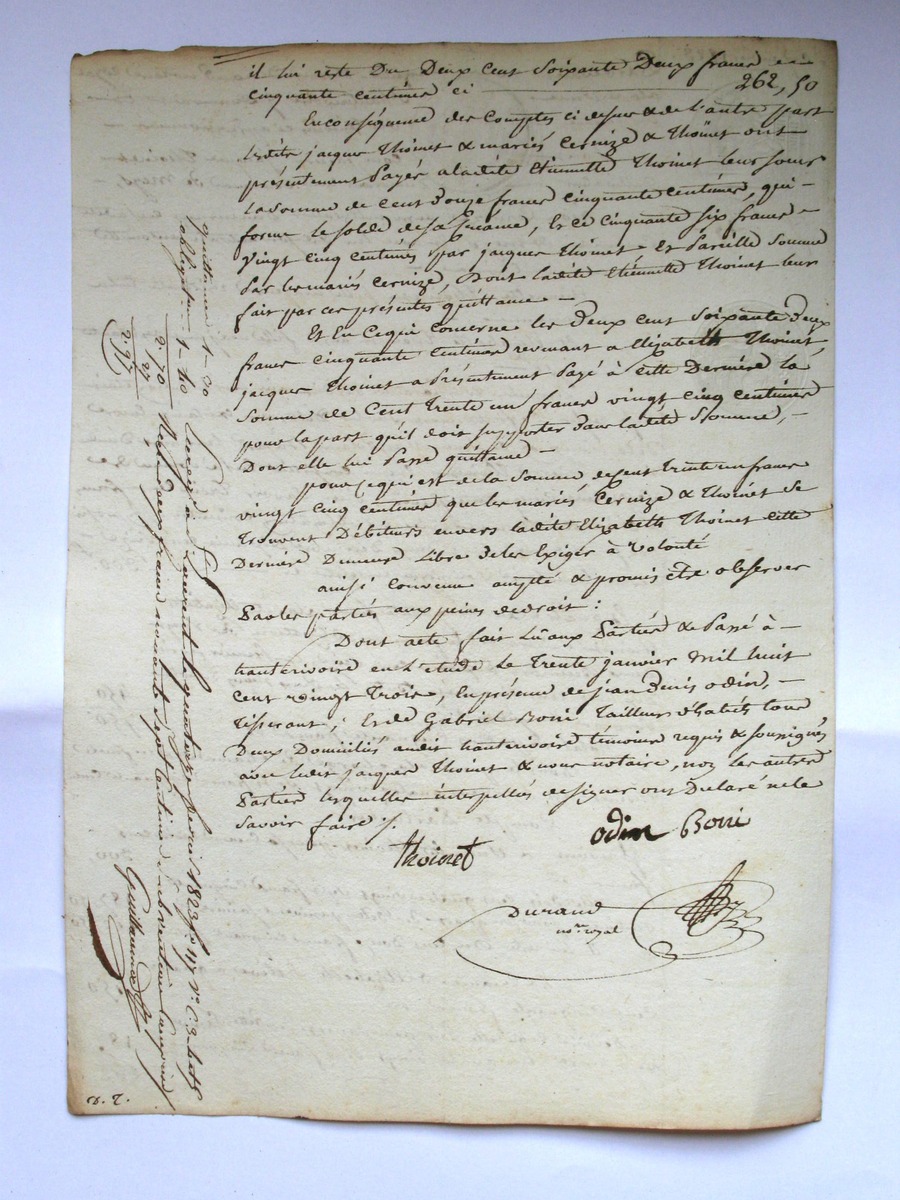 il lui reste Du Deux Cent Soixante Deux francs et
Cinquante Centimes ci 262,50
En conséquence des Comptes ci dessus & de l'autre part
Lesdits jacques thoinet & mariés Cernize & thoinet ont
présentement Payés a ladite Etiennette thoinet leur sœur
La Somme de Cent Douze francs Cinquante Centimes, qui
forme le solde de sa Créance, Et ce Cinquante Six francs
Vingt Cinq Centimes Par jacques thoinet Et Pareille Somme
Par les mariés Cernize, Dont ladite Etiennette thoinet leur
fait par ces présentes quittance
Et En Ce qui Concerne les Deux Cent Soixante Deux
francs Cinquante Centimes revenant a Elizabeth thoinet
jacques thoinet a Présentement Payé à Cette Dernière la
Somme de Cent Trente un francs Vingt Cinq Centimes
pour la part qu'il doit supporter dans ladite Somme,
Dont elle lui Passe quittance
pour ce qui est de la Somme de Cent trente un francs
vingt Cinq Centimes que les mariés Cernize & thoinet Se
trouvent Débiteurs envers ladite Elizabeth thoinet Cette
Dernière Demeure Libre de les Exiger à Volonté
ainsi Convenu accepté & promis être observer
Par les parties aux peines de droit :
Dont acte fait Lu aux Parties & Passé à
hauterivoire en L'étude Le Trente janvier Mil huit
Cent Vingt Trois, En présence de jean Denis odin,
tisserant, ; Et de Gabriel Boni Tailleurs d'habits tous
Deux Domiciliés audit hauterivoire témoins requis & soussignés
avec ledit jacques thoinet & nous notaire, non les autres
Parties lesquelles interpellées de signer ont Déclaré ne le
Savoir faire ./.
odin Boni
thoinet
Durand
no.re royal
quittance 1-30
obligation 1-40
2-70
27
2.97
le quatorze 1823 f° 117 V° C. 3
deux francs dix sept centimes
Guillaume
d. 2.